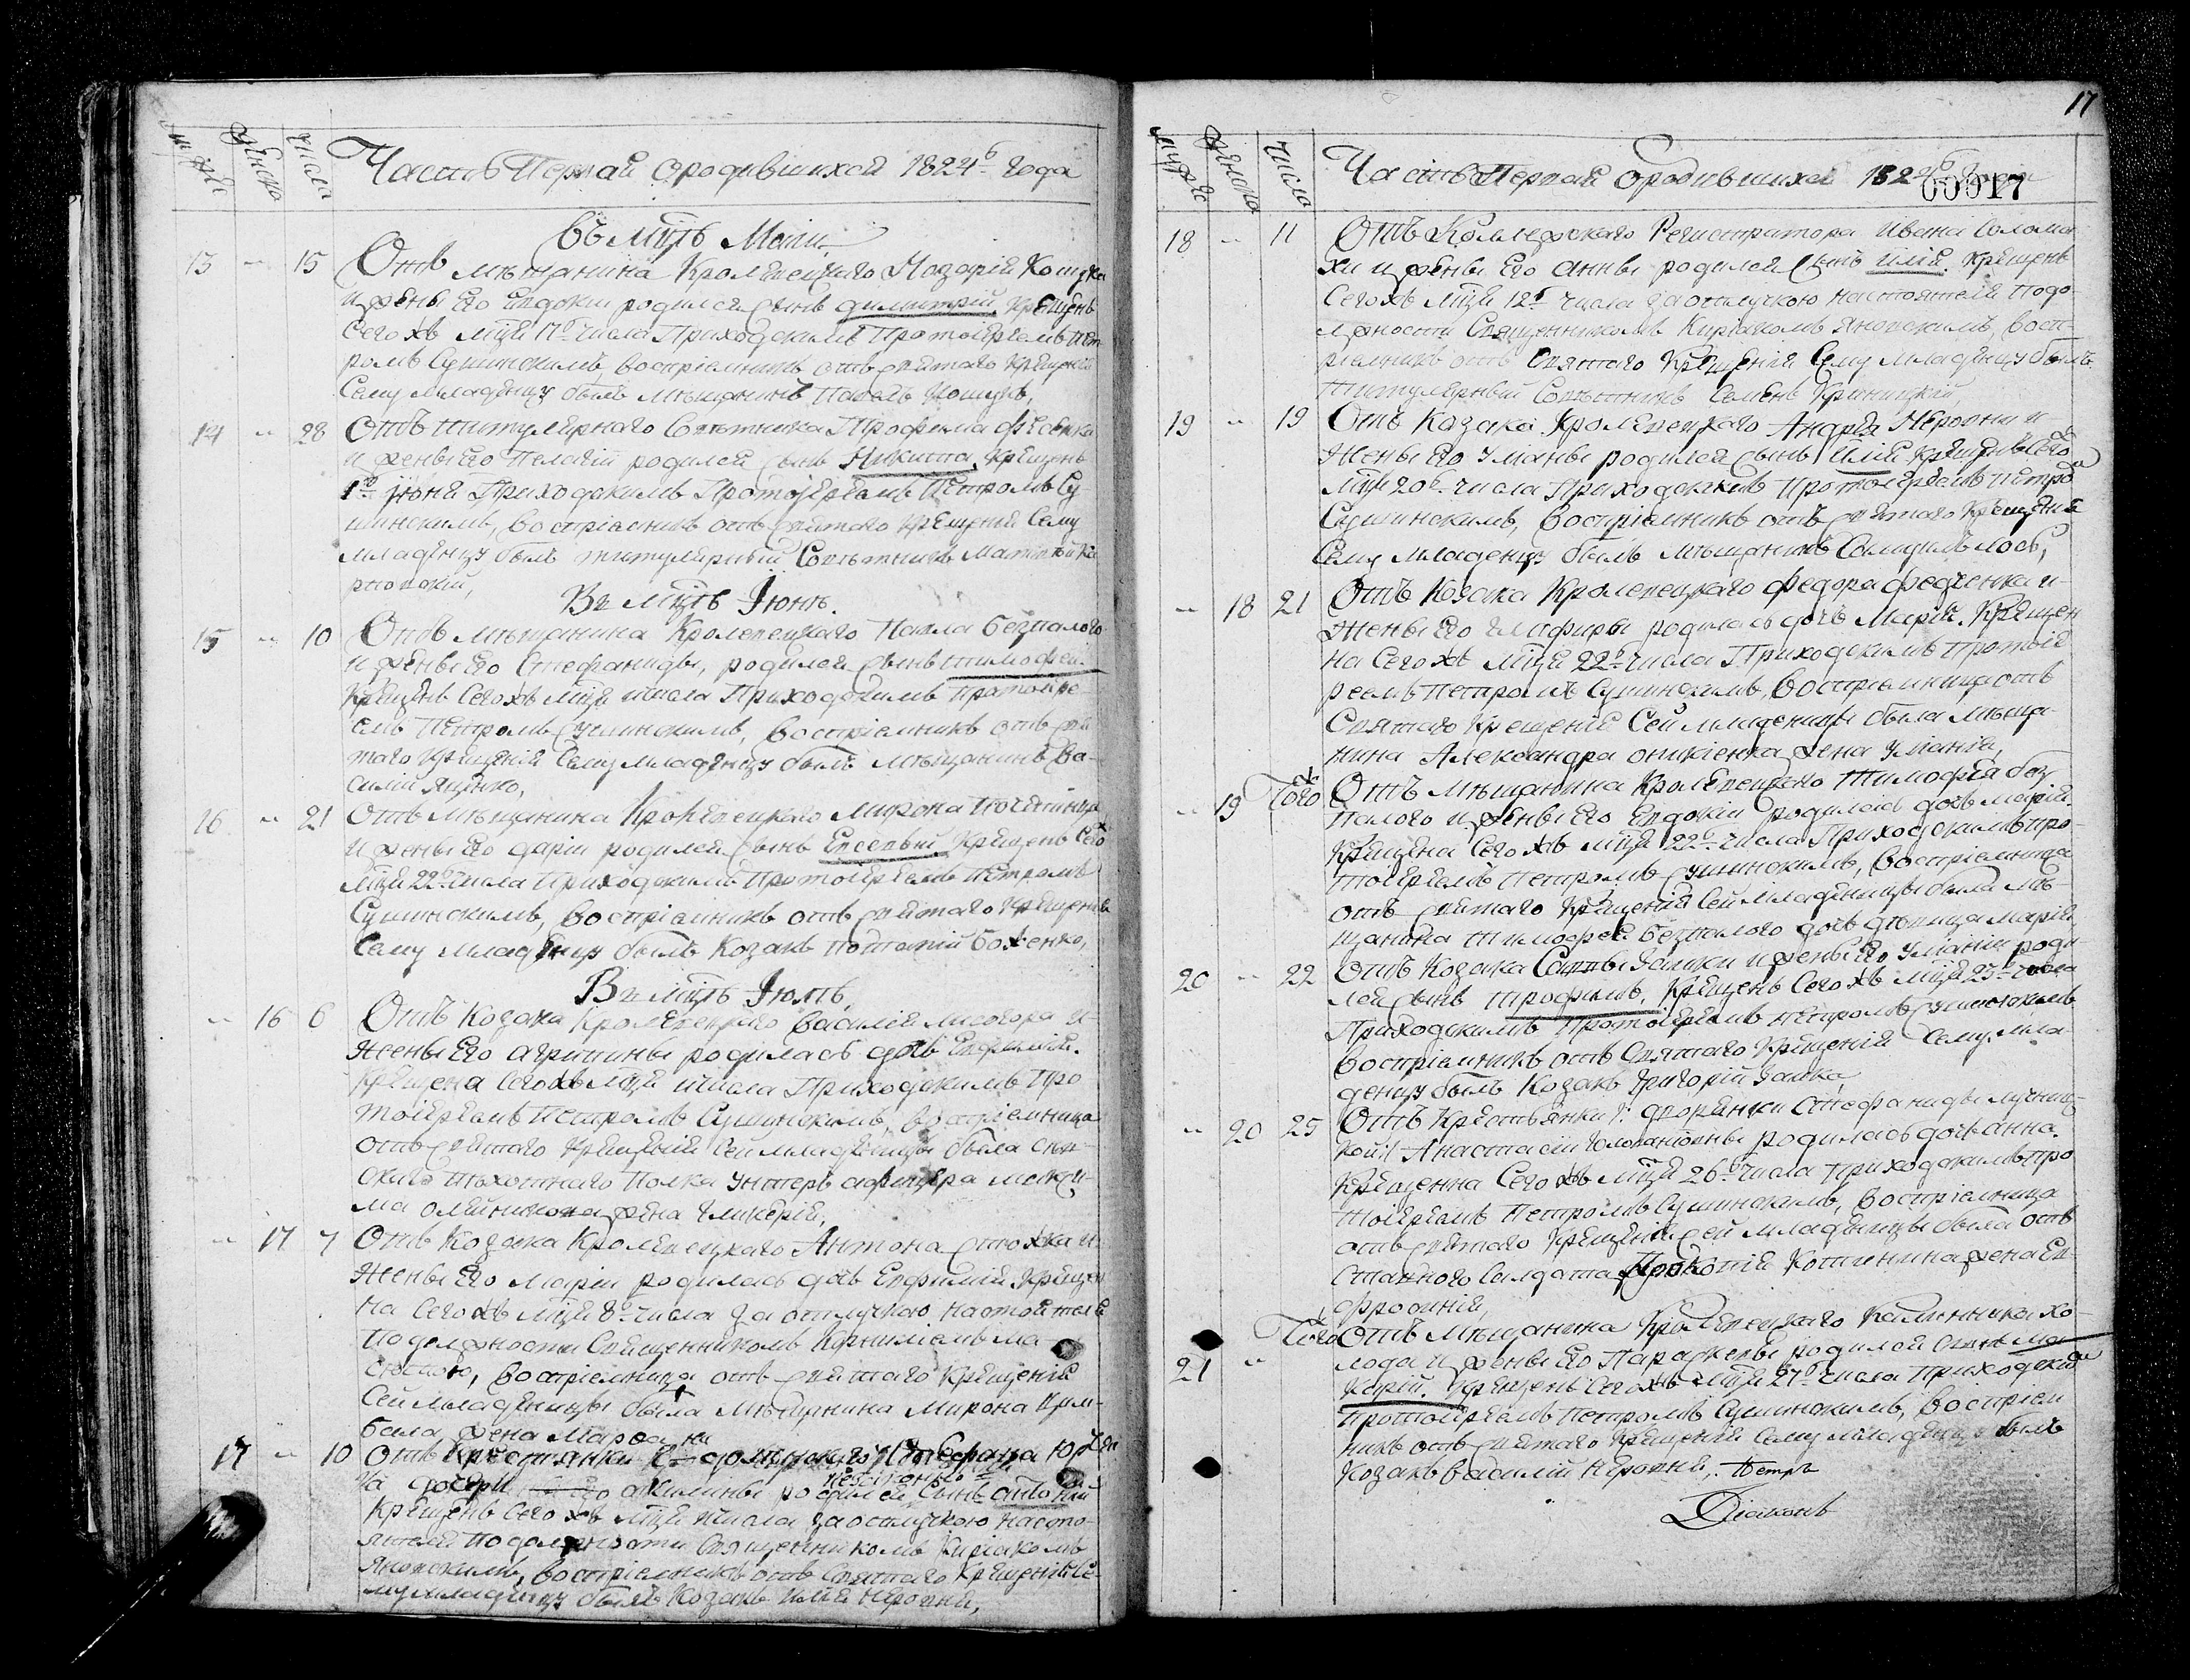 мужес женска числа
Часть Первая о родившихся 1824го года
въ мцѣ Маии
13 " 15 Отъ мѣщанина Кролевецкаго Назарія Кошука
и жены его Евдокіи родился сынъ Димитрій. Крещенъ
Сегожъ мця 17го числа Приходскимъ Протоіереемъ Пет
ромъ Сушинскимъ, воспріемникъ отъ святаго крещенія
Сему младенцу былъ мѣщанинъ Павелъ Кошукъ,
14 " 28 Отъ титулярнаго Совѣтника Трофима
и жены его Пелагіи родился сынъ Никита, крещенъ
1го Іюня Приходскимъ Протоіереемъ Петромъ Су
шинскимъ, воспріемникъ отъ святаго крещенія Сему
младенцу былъ титулярный Совѣтникъ Матвѣй Ка
рповскій,
Въ мцѣ Іюнѣ.
15 " 10 Отъ мѣщанина Кролевецкаго Павла Безпалого
и жены его Стефаниды, родился сынъ Тимофей.
Крещенъ Сегожъ мця числа Приходскимъ Протоіере
емъ Петромъ Сушинскимъ, воспріемникъ отъ свя
таго крещенія Сему младенцу былъ мѣщанинъ Ва-
силій Яценко,
16 " 21 Отъ мѣщанина Кролевецкаго Мирона
и жены его Даріи родился сынъ Евсевый. Крещенъ Сегож
мця 22го числа Приходскимъ Протоіереемъ Петромъ
Сушинскимъ, воспріемникъ отъ святаго крещенія
Сему младенцу былъ Козакъ Потапій Боженко,
Въ мцѣ Іюлѣ,
" 16 6 Отъ Козака Кролевецкаго Василія Лисогора и
жены его Агрипины родилась дочь Евфимія.
Крещена Сегожъ мця числа Приходскимъ Про
тоіереемъ Петромъ Сушинскимъ, воспріемница
отъ святаго крещенія Сей младеницы была
пѣхотнаго Полка Унтеръ афицера Макси-
ма Олийникова жена Гликерія,
" 17 7 Отъ Козака Кролевецкаго Антона и
жены его Маріи родилась дочь Евфимія, Крещен
на Сегожъ мця 8го числа за отлучкою настоятеля
По должности Священникомъ Корниліемъ Ма
воспріемница отъ святаго Крещенія
Сей младеницы была мѣщанина Мирона
жена Марфа
17 " 10 Отъ Крестьянки Стефана
дочери Акилины родился сынъ Антоній
Крещенъ Сегожъ мця числа за отлучкою насто-
ятеля по должности Священникомъ Киріакомъ
Яновскимъ, воспріемникъ отъ Святаго Крещенія Се-
му младенцу былъ Козакъ Илія Неровня,
17
мужес женска числа
Часть Первая о родившихся 1824го года
00017
18 " 11 Отъ Коллежскаго Регистратора Ивана Солома
хи и жены его Анны родился сынъ Илія. Крещенъ
Сегожъ мця 12го числа за отлучкою настоятеля подо-
лжности Священникомъ Киріакомъ Яновскимъ, восп-
ріемникъ отъ Святаго Крещенія Сему младенцу былъ
титулярный Совѣтникъ Семенъ Криницкій,
19 " 19 Отъ Козака Кролевецкаго Андрея Неровни и
жены его Уліаны родился сынъ Илія Крещенъ Сегож
мця 20го числа Приходскимъ Протоіереемъ Петром
Сушинскимъ, воспріемникъ отъ святаго Крещенія
Сему младенцу былъ мѣщанинъ Самуилъ Лось,
" 18 21 Отъ Козака Кролевецкаго Федора Федченка и
жены его Глафиры родилась дочь Марія. Крещен
на Сегожъ мця 22го числа Приходскимъ Протоіе
реемъ Петромъ Сушинскимъ, воспріемница отъ
Святаго Крещенія Сей младеницы была мѣща-
нина Александра жена Уліанія,
" 19 Тогож Отъ мѣщанина Кролевецкаго Тимофея Без
палого и жены его Евдокіи родилась дочь Марія.
Крещена Сегожъ мця 22го числа Приходскимъ Про-
тоіереемъ Петромъ Сушинскимъ, воспріемница
отъ святаго Крещенія Сей младеницы была мѣ-
щанина Тимофея Безпалого дочь дѣвица Марія
20 " 22 Отъ Козака Саввы Заики и жены его Уліаніи роди
лся сынъ Трофимъ. Крещенъ Сегожъ мця 23го числа
Приходскимъ Протоіереемъ Петромъ Сушинскимъ
воспріемникъ отъ Святаго Крещенія Сему мла-
денцу былъ Козакъ Григорій Заика,
" 20 25 Отъ Крестьянки /: дворянки Стефаниды
кой:/ Анастасіи родилась дочь Анна.
Крещенна Сегожъ мця 26го числа Приходскимъ Про
тоіереемъ Петромъ Сушинскимъ, воспріемница
отъ святаго Крещенія сей младеницы была отъ
ставного Салдата Прокопія жена Ев
фросинія,
21 " Тогож Отъ мѣщанина Кролевецкаго Калинника Хо-
лода и жены его Параскевы родился сынъ Ма
карій. Крещенъ Сегожъ мця 27го числа Приходским
Протоіереемъ Петромъ Сушинскимъ, воспріем
никъ отъ святаго Крещенія Сему младенцу былъ
Козакъ Василій Неровня, Петръ
Діаконъ